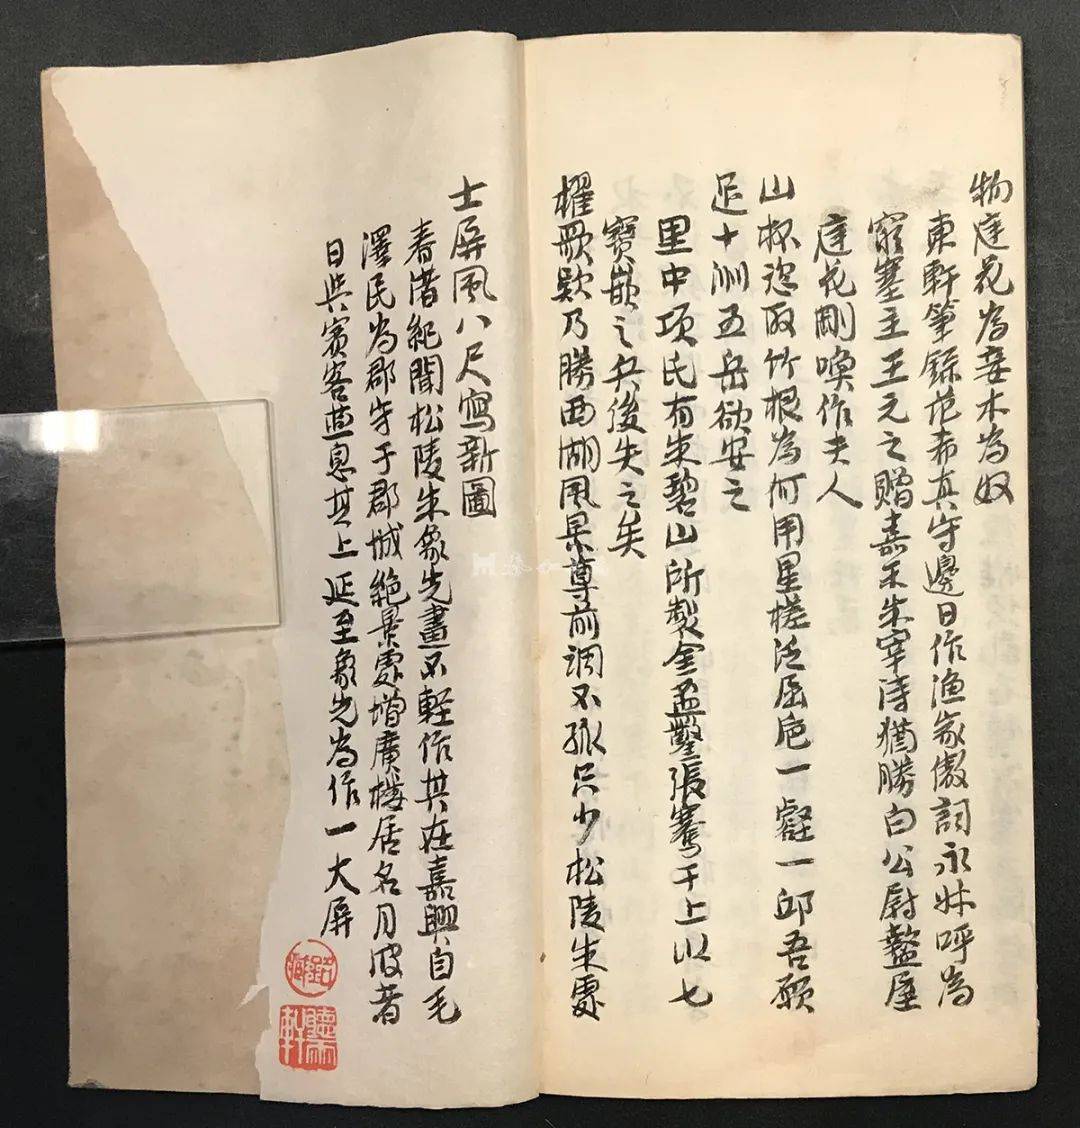 物庭花為妾木為奴
東軒筆錄范希真守邊日作漁家傲詞永叔呼為
窮塞主王元之贈嘉禾朱宰詩猶勝白公尉盩厔
庭花剛喚作夫人
山杯取竹根為何用星槎泛屈卮一壑一邱吾願
足十洲五岳欲安之
里中項氏有朱碧山所製金盃鑿張騫于上以七
寶嵌之兵後失之矣
櫂歌欵乃勝西湖風景尊前調不孤只少松陵朱處
士屏風八尺寫新圖
春渚紀聞松陵朱象先畫不輕作其在嘉興自毛
澤民為郡守于郡城絕景處增廣樓居名月波者
日與賓客燕息其上延至象先為作一大屏
聽雨軒